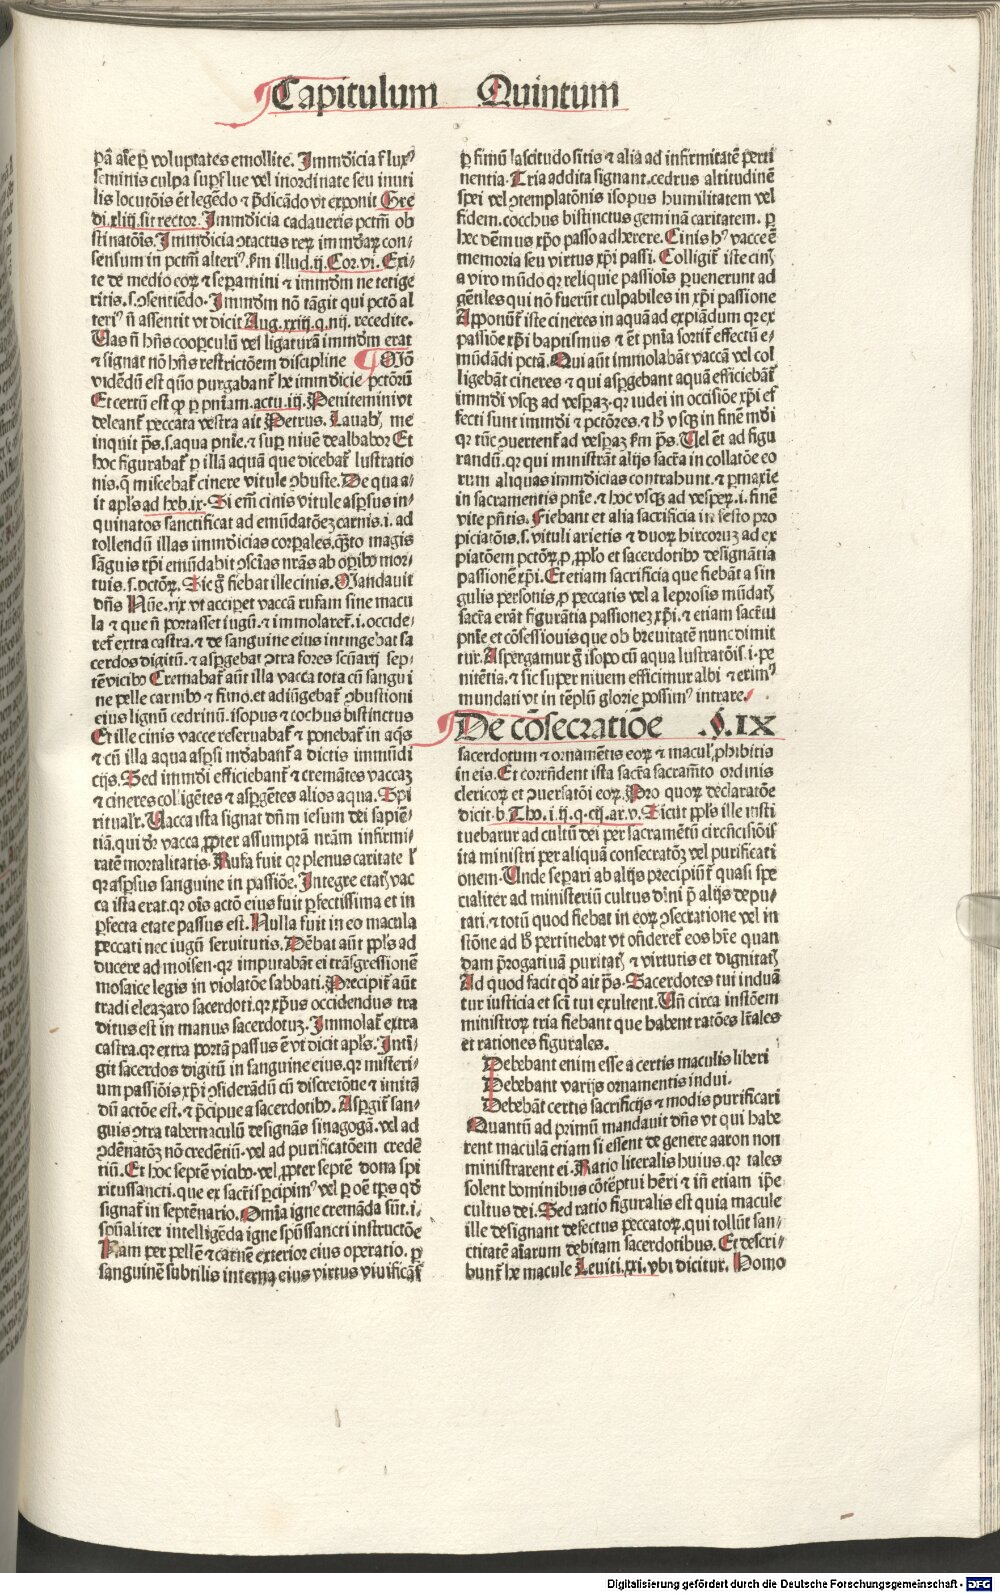 Capitulum Quintum
pã aĩe ꝑ voluptates emollite. Immũdicia fluxꝰ
seminis culpa suꝑflue vel inordinate seu inuti
lis locutõis ẽt legẽdo ⁊ p̃dicãdo vt exponit Gre
di.xliij.sit rector. Immũdicia cadaueris pctm̃ ob
stinatõis. Immũdicia ↄtactus reꝝ immũdaꝝ con-
sensum in pctm̃ alteriꝰ. fm illud.ij.Cor.vi. Exi-
te de medio eoꝝ ⁊ sepamini ⁊ immũdm ne tetige
ritis.s.ↄsentiẽdo. Immũdm nõ tãgit qui pctõ al
teriꝰ ñ assentit vt dicit Aug.xxiij.q.iiij. recedite.
Uas ñ hñs cooperculũ vel ligaturã immũdm erat
⁊ signat nõ hñs restrictõem discipline ¶ Mõ
vidẽdũ est quõ purgabant᷑ he immũdicie pctõrũ
Et certũ est ꝙ ꝑ pnĩam.actu.iij. Peniteminiut
deleant᷑ peccata vestra ait Petrus. Lauabꝭ me
inquit p̃s.s.aqua pnĩe.⁊ sup niuẽ dealbabor Et
hoc figurabat᷑ ꝑ illã aquã que dicebat᷑ lustratio
nis.q̃ miscebat᷑ cinere vitule ↄbuste. De qua a-
it apl̃s ad heb.ix. Si em̃ cinis vitule aspsus in-
quinatos sanctificat ad emũdatõez carnis.i.ad
tollendũ illas immũdicias corpales.q̃to magis
sãguis xp̃i emũdabit ↄsciãs nr̃as ab oꝑibꝰ mor-
tuis.s.pctõꝝ. Sic g̃ fiebat ille cinis. Mandauit
dñs Nũe.xix vt acciꝑet vaccã rufam sine macu
la ⁊ que ñ portasset iugũ.⁊ immolaret᷑.i.occide-
ret᷑ extra castra.⁊ de sanguine eius intingebat sa
cerdos digitũ.⁊ aspgebat ↄtra fores scũarij sep-
tẽ vicibꝰ Cremabat᷑ aũt illa vacca tota cũ sangui
ne pelle carnibꝰ ⁊ fimo.et adiũgebat᷑ ↄbustioni
eius lignũ cedrinũ.isopus ⁊ cochus bistinctus
Et ille cinis vacce reseruabat᷑ ⁊ ponebat᷑ in aq̃s
⁊ cũ illa aqua aspsi mũdabant᷑ a dictis immũdi
cijs. Sed immũdi efficiebant᷑ ⁊ cremãtes vaccaz
⁊ cineres colligẽtes ⁊ aspgẽtes alios aqua. Spi
ritualr̃. Uacca ista signat dñm iesum dei sapiẽ-
tiã.qui dr̃ vacca ꝓpter assumptã nr̃am infirmi-
ratẽ mortalitatis. Rufa fuit qꝛ plenus caritate ł
qꝛ aspsus sanguine in passiõe. Integre etatꝭ vac
ca ista erat.qꝛ oĩs actõ eius fuit pfectissima et in
pfecta etate passus est. Nulla fuit in eo macula
peccati nec iugũ seruitutis. Debat aũt ppl̃s ad
ducere ad moisen.qꝛ imputabãt ei trãsgressionẽ
mosaice legis in violatõe sabbati. Precipit᷑ aũt
tradi eleazaro sacerdoti.qꝛ xp̃us occidendus tra
ditus est in manus sacerdotuz. Immolat᷑ extra
castra.qꝛ extra portã passus ẽ vt dicit apl̃s. Inti-
git sacerdos digitũ in sanguine eius.qꝛ misteri-
um passiõis xp̃i ↄsiderãdũ cũ discretiõne ⁊ imitã
dũ actõe est.⁊ p̃cipue a sacerdotibꝰ. Aspgit᷑ san-
guis ↄtra tabernaculũ designãs sinagogã.vel ad
ↄdẽnatõz nõ credẽtiũ.vel ad purificatõem credẽ
tiũ. Et hoc septẽ vicibꝰ.vel ꝓpter septẽ dona spi
ritussancti.que ex sacr̃is pcipimꝰ vel ꝑ oẽ tp̃s qđ
signat᷑ in septẽnario. Omĩa igne cremãda sũt.i.
spũaliter intelligẽda igne spũssancti instructõe
Nam per pellẽ ⁊ carnẽ exterior eius operatio. ꝑ
sanguinẽ subtilis interna eius virtus viuificãs
ꝑ fimũ lascitudo sitis ⁊ alia ad infirmitatẽ perti
nentia. Tria addita signant.cedrus altitudinẽ
spei vel ↄtemplatõnis isopus humilitatem vel
fidem.cocchus bistinctus geminã caritatem. ꝑ
hec dẽmus xp̃o passo adherere. Cinis hꝰ vacce ẽ
memoria seu virtus xp̃i passi. Colligit᷑ iste cinꝭ
a viro mũdo qꝛ reliquie passiois puenerunt ad
gẽtiles qui nõ fuerũt culpabiles in xp̃i passione
Apponũt᷑ iste cineres in aquã ad expiãdum qꝛ ex
passiõe xp̃i baptismus ⁊ ẽt pnĩa sortit᷑ effectũ e-
mũdãdi pctã. Qui aũt immolabãt vaccã vel col
ligebãt cineres ⁊ qui aspgebant aquã efficiebãt᷑
immũdi vsqꝫ ad vesꝑaz.qꝛ iudei in occisiõe xp̃i ef
fecti sunt immũdi ⁊ pctõres.⁊ hͦ vsqꝫ in finẽ mũdi
qꝛ tũc ↄuertent᷑ ad vesꝑaz fm p̃s. Uel ẽt ad figu
randũ.qꝛ qui ministrãt alijs sacr̃a in collatõe eo
rum aliquas immũdicias contrahunt.⁊ p̃maxĩe
in sacramentis pnĩe.⁊ hoc vsqꝫ ad vesꝑeꝝ.i.finẽ
vite pñtis. Fiebant et alia sacrificia in festo pro
piciatõis.s.vituli arietis ⁊ duoꝝ hircoruz ad ex
piatõem pctõꝝ.ꝓ ppl̃o et sacerdotibꝰ designãtia
passionẽ xp̃i. Et etiam sacrificia que fiebãt a sin
gulis personis.ꝓ peccatis vel a leprosis mũdatꝭ
sacr̃a erãt figurãtia passionez xp̃i.⁊ etiam sacr̃m
pnĩe et cõfessiouis que ob breuitatẽ nunc dimit
tur. Aspergamur g̃ isopo cũ aqua lustratõis.i.pe
nitẽtis.⁊ sic super niuem efficimur albi ⁊ erimꝰ
mundati vt in tẽplũ glorie possimꝰ intrare.
De cõsecratiõe .§.IX
sacerdotum ⁊ ornamẽtis eoꝝ ⁊ maculꝭ ꝓhibitis
in eis. Et corrñdent ista sacr̃a sacramẽto ordinis
clericoꝝ et ↄuersatõi eoꝝ. Pro quoꝝ declaratõe
dicit.b. Tho.i.ij.q.cij.ar.v. Sicut ppl̃s ille insti
tuebatur ad cultũ dei per sacramẽtũ circũcisiõis
ita ministri per aliquã consecratõz vel purificati
onem. Unde separi ab alijs precipiũt᷑ quasi spe
cialiter ad ministeriũ cultus diĩni p̃ alijs depu-
tati.⁊ totũ quod fiebat in eoꝝ ↄsecratione vel in
stiõne ad hͦ pertinebat vt oñderet᷑ eos hr̃e quan
dam p̃rogatiuã puritatꝭ ⁊ virtutis et dignitatꝭ
Ad quod facit qđ ait p̃s. Sacerdotes tui induã
tur iusticia et scĩ tui exultent. Uñ circa instõem
ministroꝝ tria fiebant que habent ratões lr̃ales
et rationes figurales.
Debebant enim esse a certis maculis liberi
Debebant varijs ornamentis indui.
Debebãt certis sacrificijs ⁊ modis purificari
Quantũ ad primũ mandauit dñs vt qui habe
rent maculã etiam si essent de genere aaron non
ministrarent ei. Ratio literalis huius.qꝛ tales
solent hominibus cõtẽptui hẽri ⁊ iñ etiam ip̃e
cultus dei. Sed ratio figuralis est quia macule
ille designant defectus peccatoꝝ.qui tollũt san-
ctitatẽ aĩarum debitam sacerdotibus. Et descri-
bunt᷑ he macule Leuiti.xxi.vbi dicitur. Homo
Digitalisierung gefördert durch die Deutsche Forschungsgemeinschaft - DFG